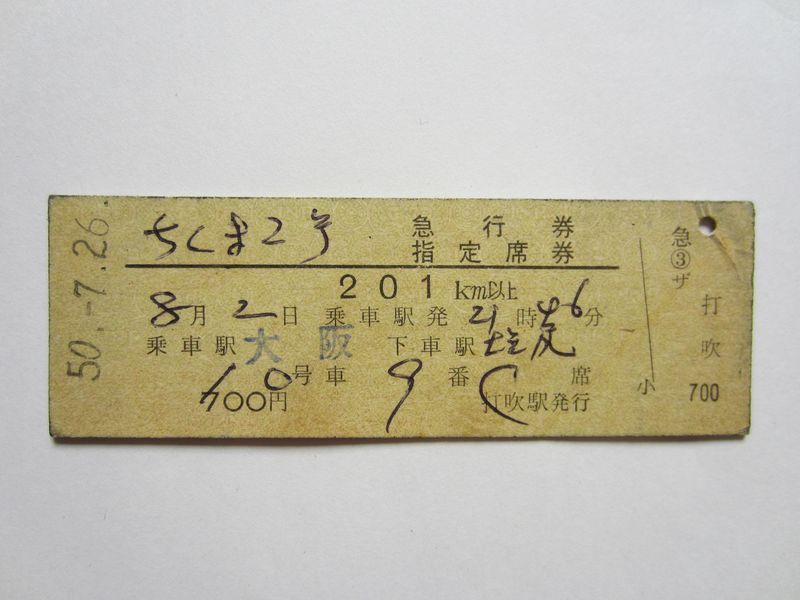 50.-7.26.
ちくま2号
急行券
指定席券
201km以上
8月2日 乗車駅発21時 分
乗車駅 大阪 下車駅
10号車 9番C席
700円 打吹駅発行
急③ザ
小
打吹
700